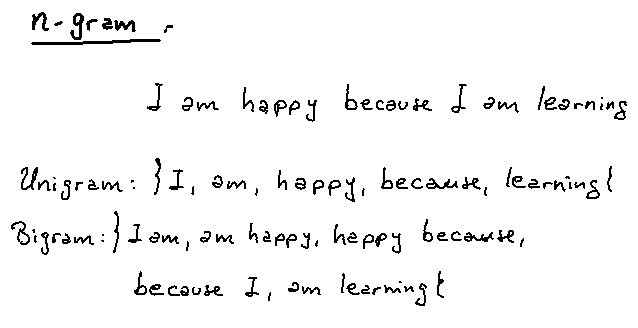 n-gram.
I am happy because I am learning
Unigram: }I, am, happy, because, learning{
Bigram: }I am, am happy, happy because,
because I, am learning{